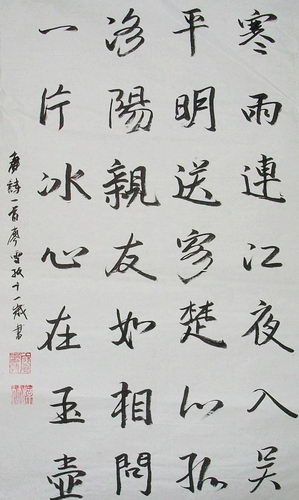 寒雨連江夜入吴
平明送客楚山孤
洛陽親友如相問
一片冰心在玉壺
唐詩一首廖雪孜十一歲書